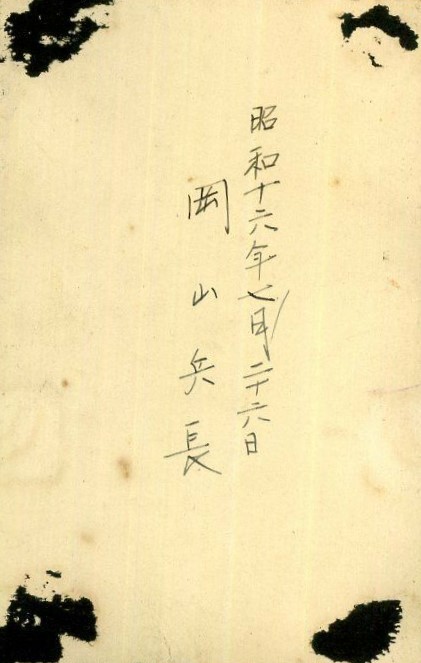 昭和十六年七月二十六日
岡山兵長